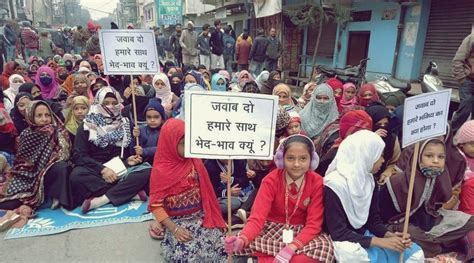 जवाब दो
हमारे साथ
भेद-भाव क्यूं ?
जवाब दो
हमारे साथ
भेद-भाव क्यूं ?
जवाब दो
हमारे
भविष्य का
क्या होगा ?